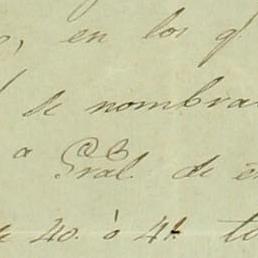 en los q
de nombra
a Gral. de
40. ó 41. to